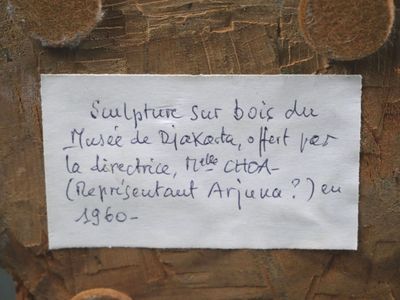 Sculpture sur bois du
Musée de Djakarta, offert par
la directrice, Melle CHOA-
(Représentant Arjuna ?) en
1960-